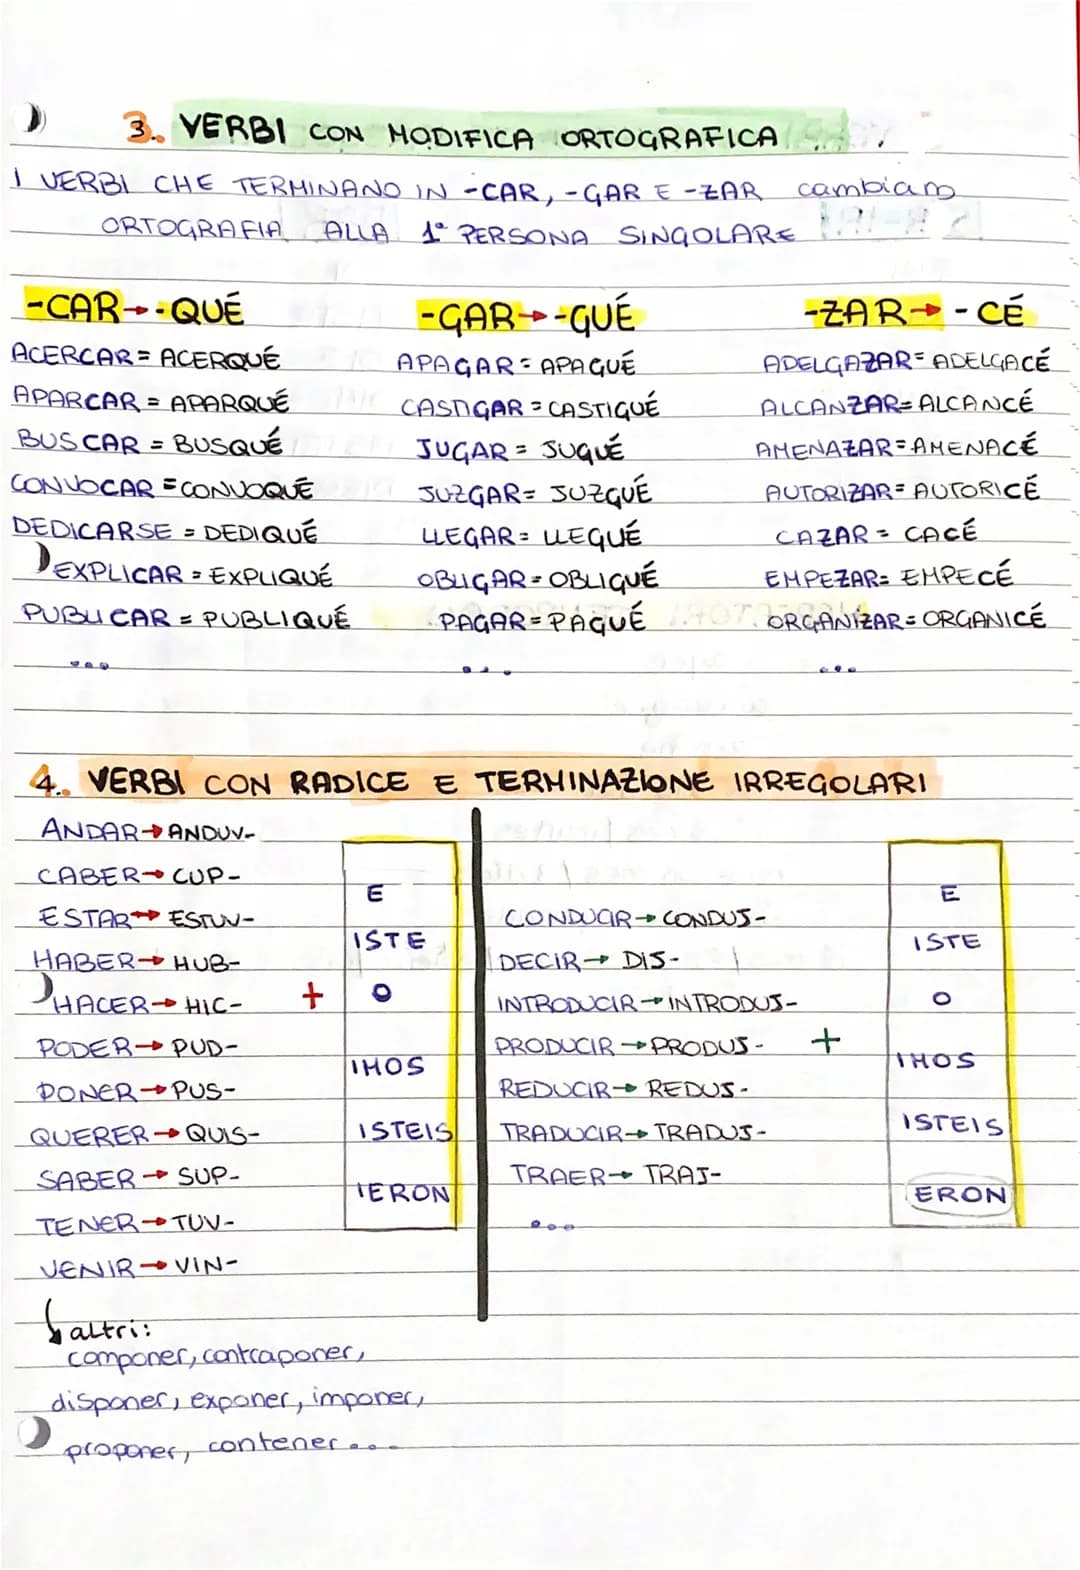 3. VERBI CON MODIFICA ORTOGRAFICA
I VERBI CHE TERMINANO IN -CAR, -GAR E -ZAR cambiano
ORTOGRAFIA ALLA 1ª PERSONA SINGOLARE
-CAR→-QUÉ
ACERCAR = ACERQUÉ
APARCAR = APARQUÉ
BUSCAR = BUSQUÉ
CONVOCAR = CONVOQUÉ
DEDICARSE = DEDIQUÉ
EXPLICAR = EXPLIQUÉ
PUBLICAR = PUBLIQUÉ
...
-GAR→-GUÉ
APAGAR = APAGUÉ
CASTIGAR = CASTIGUÉ
JUGAR = JUGUÉ
JUZGAR = JUZGUÉ
LLEGAR = LLEGUÉ
OBLIGAR = OBLIGUÉ
PAGAR = PAGUÉ
...
-ZAR→-CÉ
ADELGAZAR = ADELGACÉ
ALCANZAR = ALCANCÉ
AMENAZAR = AMENACÉ
AUTORIZAR = AUTORICÉ
CAZAR = CACÉ
EMPEZAR = EMPECÉ
ORGANIZAR = ORGANICÉ
...
4. VERBI CON RADICE E TERMINAZIONE IRREGOLARI
ANDAR→ANDUV-
CABER→CUP-
ESTAR→ESTUV-
HABER→HUB-
HACER→HIC-
PODER→PUD-
PONER→PUS-
QUERER→QUIS-
SABER→SUP-
TENER→TUV-
VENIR→VIN-
+
E
ISTE
O
IMOS
ISTEIS
IERON
CONDUCIR→CONDUJ-
DECIR→DIJ-
INTRODUCIR→INTRODUJ-
PRODUCIR→PRODUJ-
REDUCIR→REDUJ-
TRADUCIR→TRADUJ-
TRAER→TRAJ-
...
+
E
ISTE
O
IMOS
ISTEIS
ERON
altri:
componer, contraponer,
disponer, exponer, imponer,
proponer, contener...